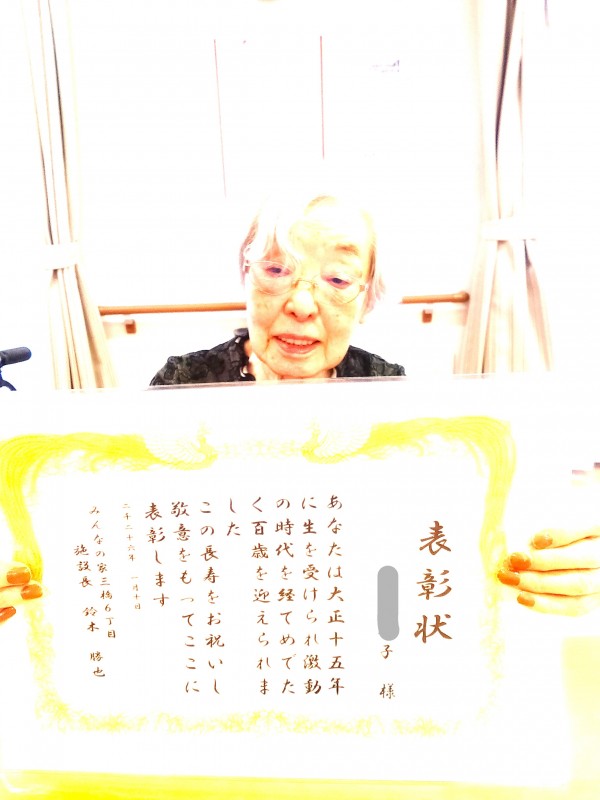 表彰状
子 様
あなたは大正十五年
に生を受けられ激動
の時代を経てめでた
く百歳を迎えられま
した
この長寿をお祝いし
敬意をもってここに
表彰します
二千二十六年 一月十日
みんなの家三橋6丁目
施設長 鈴木 勝也